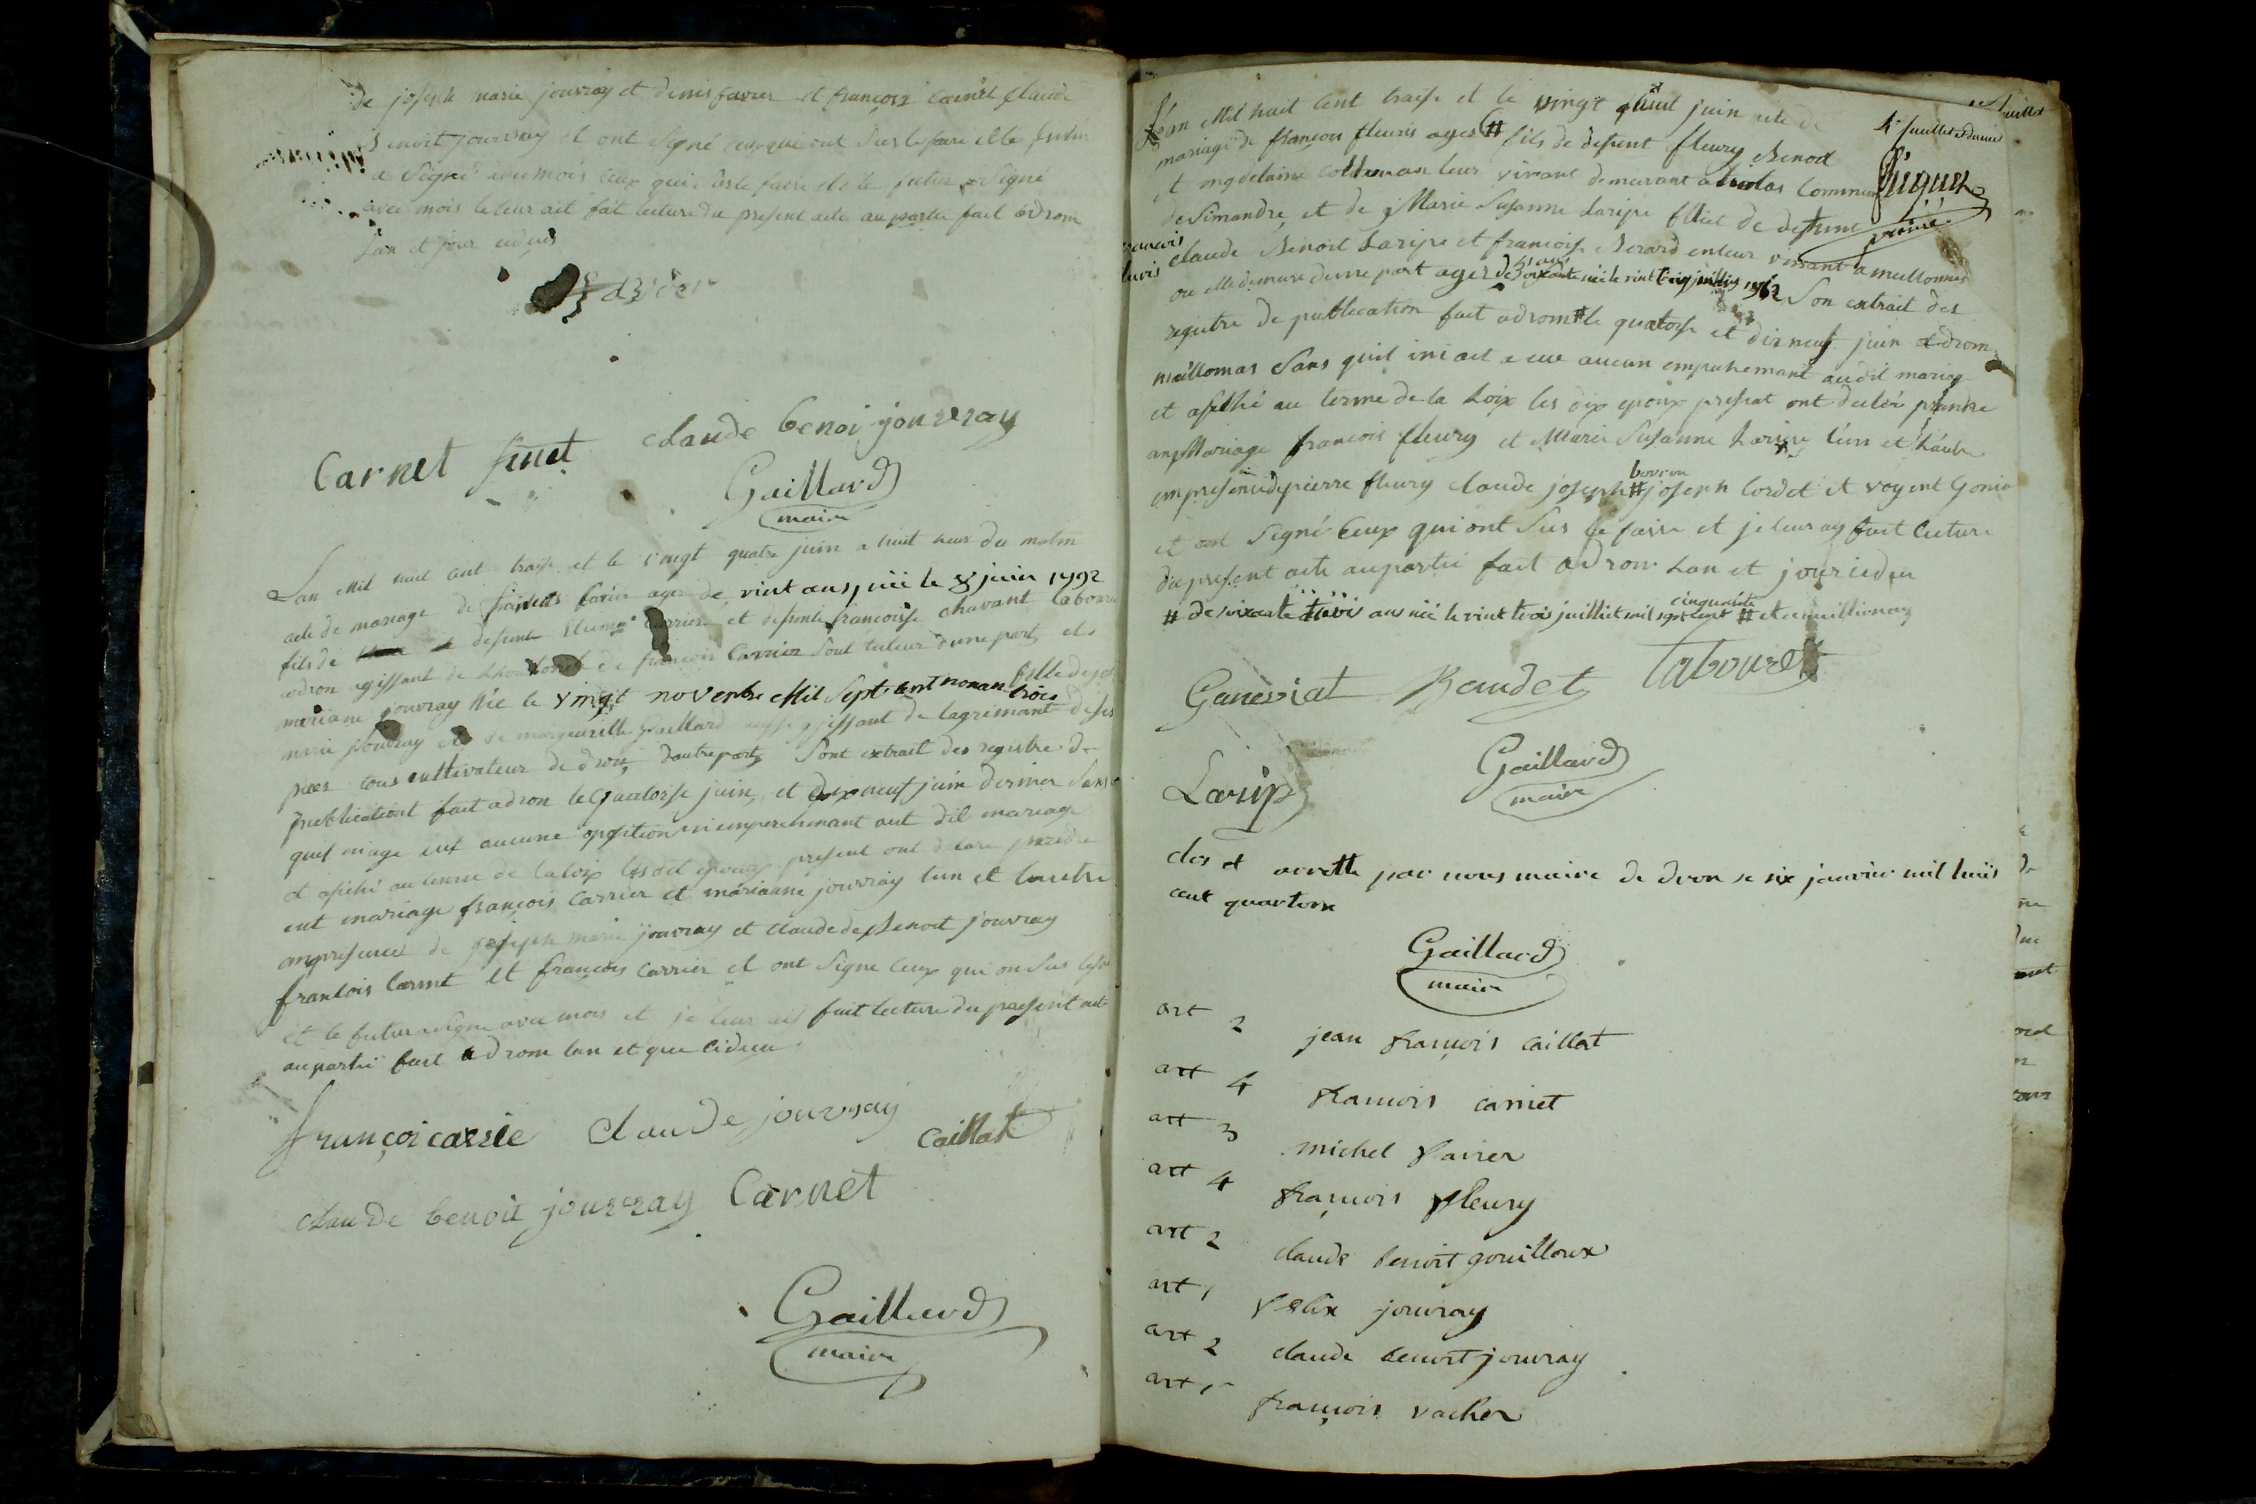 de joseph marie jouvray et denis favier et françois carnet Claude
Benoit jouvray et ont signé ceux qui ont sus le faire et le futur
a signé avec mois ceux qui sus le faire et le futur a signé
avec mois le leur ait fait lecture du present acte au partie fait a drom
lan et jour cidessus
Carnet finet claude benoi jouvray
Gaillard
maire
Lan mil huit cent traise et le vingt quatre juin a huit heur du matin
acte de mariage de françois carrier ager de vint ans, née le 8 juin 1792
fils de defunt carrier et defunte françoise chavant laboureur
adron agissant de de françois Carrier sont tuteur dune part, et
mariane jouvray née le vingt novembre mil sept cent nonan trois fille de jos
marie jouvray et de marguerille Gaillard agissant de lagremant de ses
peres tous cultivateur de dron, dautre part, sont extrait des registre de
publications fait adron le quatorse juin, et dix neuf juin dernier sans
quil niage eut aucune oposition ni empechemant aut dit mariage
et afiché au terme de la loix les dit epoux present ont declare prendre
ent mariage françois Carrier et marianne jouvray lun et lautre
an presence de joseph marie jouvray et claude de Benoit jouvray
francois Carnet et françois carrier et ont signe ceux qui on sus lefair
et le futur a signe avec mois et je leur ais fait lecture du present acte
au partie fait a drom lan et que cideçu
françoi carrie Claude jouvray
caillat
claude benoit jouvray Carnet
Gaillard
maire
Lan mil huit cent traise et le vingt huit juin acte de
mariage de françois fleuris ages # fils de defunt fleury Benoit
4e feuillet
Piquet
et magdelaine leur vivant demurant a commune
de Simandre, et de Marie Susanne Laripe fillie de defunt
claude Benoit Laripe et francoise Berard en leur vivant a meillonnas
françois
fleuris
ou elle demure dune part ager de 51 ans née le vint trois juillis 1762 son extrait des
registre de publication fait adrom # le quatorse et dix neuf juin a drom
meillonas sans quil ini ait eue aucun empechemant audit mariage
et afiché au terme de la loix les dix epoux present ont decléré prendre
an mariage françois fleury et Marie Susanne Laripe l'un et l'autre
bouvou
em presence de pierre fleury claude joseph # joseph Cordet et voyent
et ont signé ceux qui ont sus le faire et je leur ay fait lecture
du present acte au partie fait a dron lan et jour cideçu
cinquante
# de soixante trois ans née le vint troi juilliet mil sept cent # et a meillionas
Ganeviat Baudet Tabouret
Larip
Gaillard
maire
clos et arrette par nous maire de dron se six janvier mil huis
cent quartorse
Gaillard
maire
art 2 jean françois caillat
art 4 françois carriet
art 3 michel favier
art 4 françois fleury
art 2 claude benoit gouilloux
art 1 felix jouvray
art 2 claude benoit jouvray
art 1 françois vacher